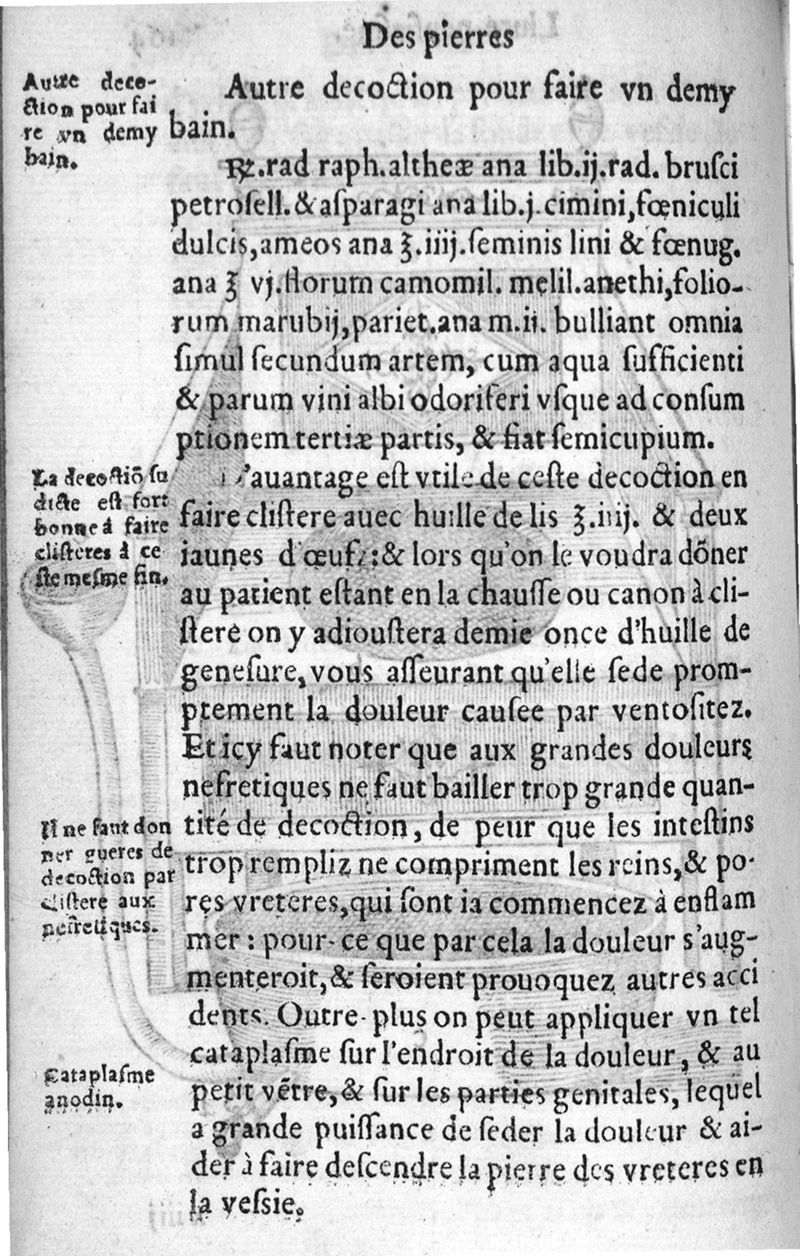 Des pierres
Autre deco-
ction pour fai
re vn demy
bain.
Autre decoction pour faire vn demy
bain.
℞.rad raph.altheæ ana lib.ij.rad. bruſci
petroſell.& aſparagi ana lib.j.cimini,fœniculi
dulcis,ameos ana ʒ.iiij.ſeminis lini & fœnug.
ana ʒ vj.florum camomil. melil.anethi,folio-
rum marubij,pariet.ana m.ii. bulliant omnia
ſimul ſecundum artem, cum aqua ſufficienti
& parum vini albi odoriferi vſque ad conſum
ptionem tertiæ partis, & fiat ſemicupium.
La decoctiõ ſu
dicte eſt fort
bonne à faire
cliſteres à ce
ſte meſme fin.
D'auantage eſt vtile de ceſte decoction en
faire cliſtere auec huille de lis ʒ.iiij. & deux
iaunes d'œufz:& lors qu'on le voudra dõner
au patient eſtant en la chauſſe ou canon à cli-
ſtere on y adiouſtera demie once d'huille de
geneſure,vous aſſeurant qu'elle ſede prom-
ptement la douleur cauſee par ventoſitez.
Et icy faut noter que aux grandes douleurs
nefretiques ne faut bailler trop grande quan-
Il ne faut don
ner gueres de
decoction par
cliſtere aux
nefretiques.
tité de decoction, de peur que les inteſtins
trop rempliz ne compriment les reins,& po-
res vreteres,qui ſont ia commencez à enflam
mer : pour-ce que par cela la douleur s'aug-
menteroit,& ſeroient prouoquez autres acci
dents. Outre-plus on peut appliquer vn tel
cataplaſme ſur l'endroit de la douleur, & au
Cataplaſme
anodin.
petit vẽtre,& ſur les parties genitales, lequel
a grande puiſſance de ſeder la douleur & ai-
der à faire deſcendre la pierre des vreteres en
la veſsie.